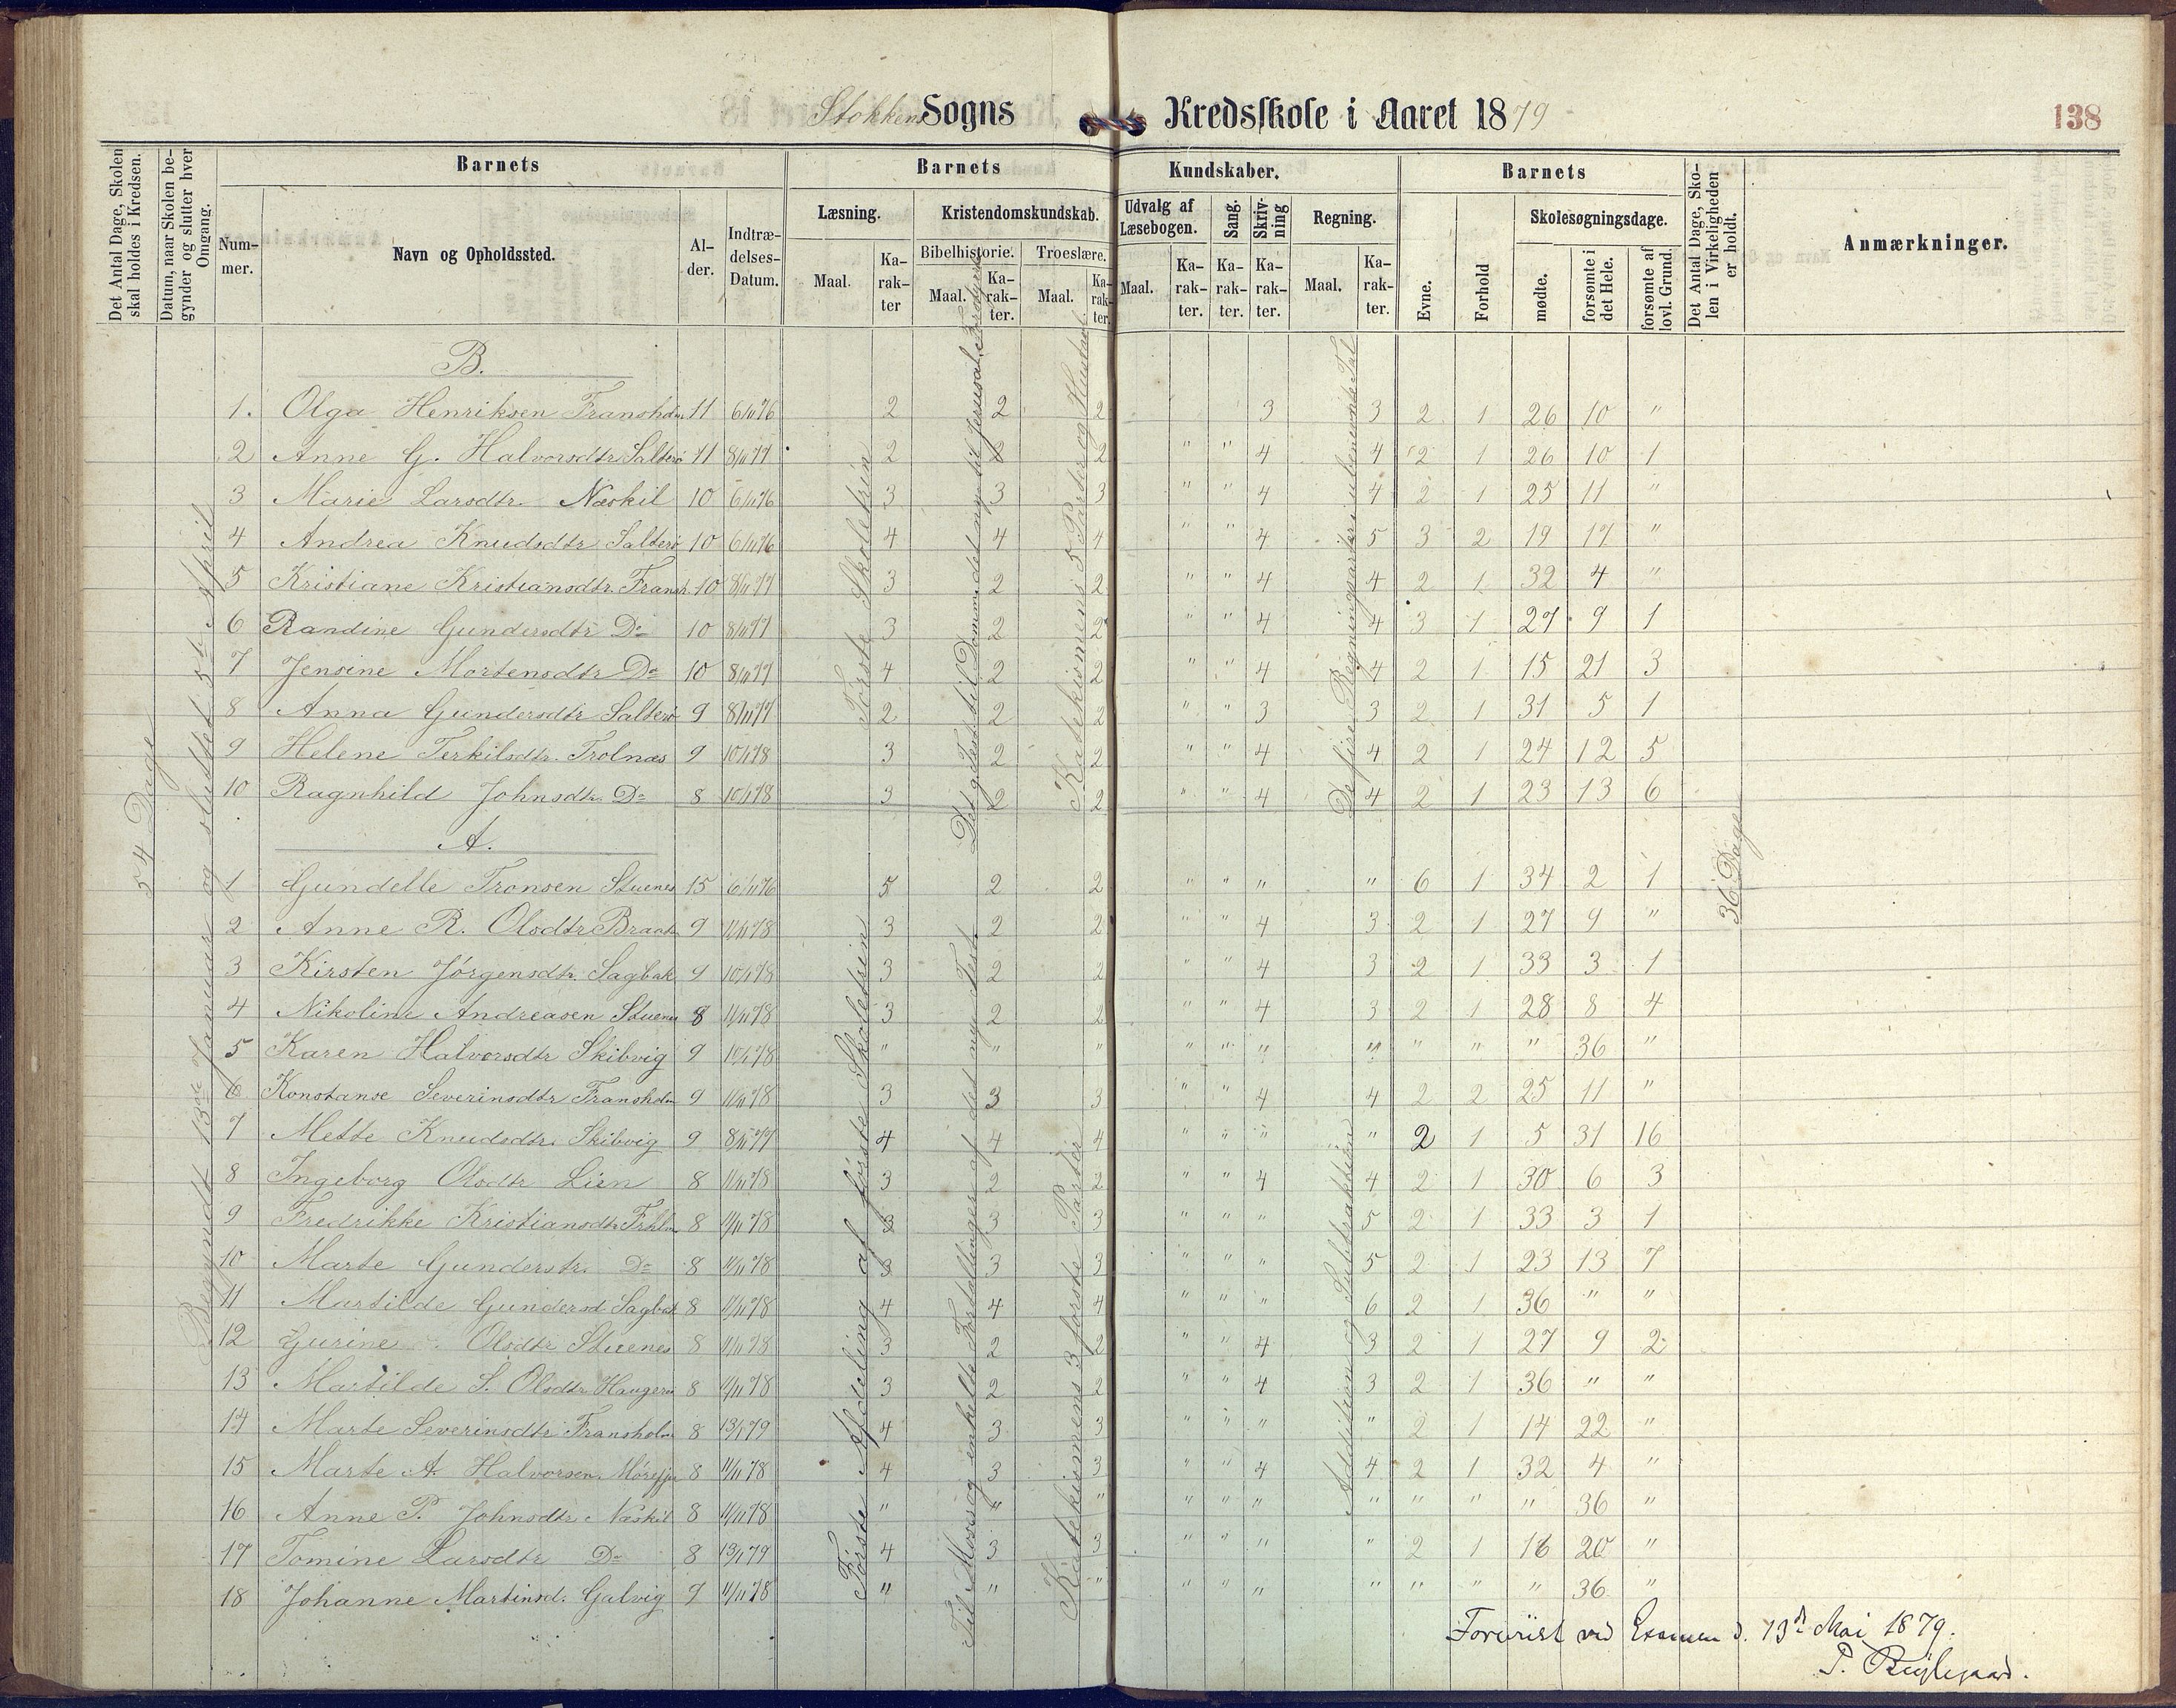 Stokken Sogns Kredsskole i Aaret 1879 138
Det Antal Dage, Skolen skal holdes i Kredsen.
Datum, naar Skolen begynder og slutter hver Omgang.
Barnets
Nummer.
Navn og Opholdssted.
Alder.
Indtrædelses-Datum.
Barnets Kundskaber.
Læsning. Kristendomskundskab. Udvalg af Læsebogen. Sang. Skrivning Regning.
Bibelhistorie. Troeslære.
Maal. Karakter Maal. Karakter. Maal. Karakter. Maal. Karakter. Karakter. Karakter. Maal. Karakter.
Barnets
Evne. Forhold
Skolesøgningsdage.
mødte. forsømte i det Hele. forsømte af lovl. Grund.
Det Antal Dage, Skolen i Virkeligheden er holdt.
Anmærkninger.
54 Dage
Begyndt 13de Januar og sluttet 5te April
B.
1. Olga Henriksen Fransholm 11 6/11 76 2 2 2 3 3 2 1 26 10 "
2 Anne G. Halvorsdtr Salterø 11 8/11 77 2 2 2 " " 4 4 2 1 26 10 1
3 Marie Larsdtr. Næskil 10 6/11 76 3 3 3 " " 4 4 2 1 25 11 "
4 Andrea Knudsdtr Salterø 10 6/11 76 4 4 4 " " 4 5 3 2 19 17 "
5 Kristiane Kristiansdtr. Fransh. 10 8/11 77 3 2 2 " " 4 4 2 1 32 4 "
6 Randine Gundersdtr Do 10 8/11 77 3 2 2 " " 4 4 3 1 27 9 1
7 Jensine Mortensdtr Do 10 8/11 77 4 2 2 " " 4 4 2 1 15 21 3
8 Anna Gundersdtr Salterø 9 8/11 77 2 2 2 " " 3 3 2 1 31 5 1
9 Helene Terkilsdtr. Trolnæs 9 10/1 78 3 2 2 " " 4 4 2 1 24 12 5
10 Ragnhild Johnsdtr. Do 8 10/1 78 3 2 2 " " 4 4 2 1 23 13 6
Første Skoletrin
Katekismens 5 Parter og Hustavl.
De fire Regningsarter i ubenævnte Tal
A.
1 Gundelle Tronsen Stuenes 15 6/11 76 5 2 2 " " " " 6 1 34 2 1
2 Anne R. Olsdtr Braat 9 11/11 78 3 2 2 " " 4 3 2 1 27 9 "
3 Kirsten Jørgensdtr. Sagbak 9 10/1 78 3 2 2 " " 4 3 2 1 33 3 1
4 Nikoline Andreasen Stuenes 8 11/11 78 3 2 2 " " 4 3 2 1 28 8 4
5 Karen Halvorsdtr Skibvig 9 10/1 78 " " " " " " " " " " 36 "
6 Konstanse Severinsdtr Fransholm 9 11/11 78 3 3 3 " " 4 4 2 2 25 11 "
7 Mette Knudsdtr. Skibvig 9 8/11 77 4 4 4 " " " " 2 1 5 31 16
8 Ingeborg Olsdtr Lien 8 11/11 78 3 2 2 " " 4 4 2 1 30 6 3
9 Fredrikke Kristiansdtr Frhlm 8 11/11 78 3 3 3 " " " 5 2 1 33 3 1
10 Marte Gunderstr. Do 8 11/11 78 3 3 3 " " " 5 2 1 23 13 7
11 Martilde Gundersd. Sagbak 8 11/11 78 4 4 4 " " " 6 2 1 36 " "
12 Gurine Olsdtr Stuenes 8 11/11 78 3 2 2 " " 4 3 2 1 27 9 2
13 Martilde S. Olsdtr 8 11/11 78 3 2 2 " " 4 3 2 1 36 " "
14 Marte Severinsdtr Fransholm 8 13/1 79 4 3 3 " " " " 2 1 14 22 "
15 Marte A. Halvorsen 8 11/11 78 4 3 3 " " 4 4 2 1 32 4 "
16 Anne P. Johnsdtr. Næskil 8 11/11 78 " " " " " " " " " " 36 "
17 Tomine Larsdtr Do 8 13/1 79 4 3 3 " " " " 2 1 16 20 "
18 Johanne Martinsd. Galvig 9 11/11 78 " " " " " " " " " " 36 "
Første Afdeling af første Skoletrin
Til Moses og enkelte Fortællinger af det nye Test.
Katekismens 3 første Parter
Addition og Subtraktion
36 Dage
Forevist ved Examen d. 13de Mai 1879.